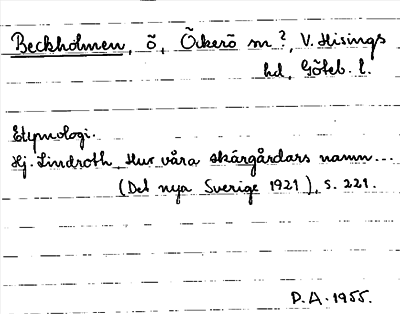 Beckholmen, ö, Öckerö sn?, V. Hisings
hd, Göteb. l.
Etymologi.
Hj. Lindroth, Hur våra skärgårdars namn...
(Det nya Sverige 1921), s. 221.
D.A. 1955.